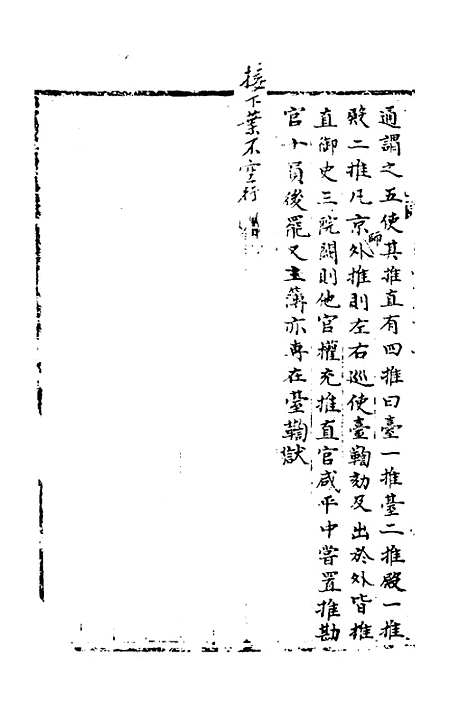 通謂之五使其推直有四推曰臺一推臺二推殿一推
殿二推凡京師外推則左右巡使臺鞫劾及出於外皆推
直御史三院闕則他官權充推直官咸平中嘗置推勘
官十員後罷又主簿亦専在臺鞫獄
接下葉不空行